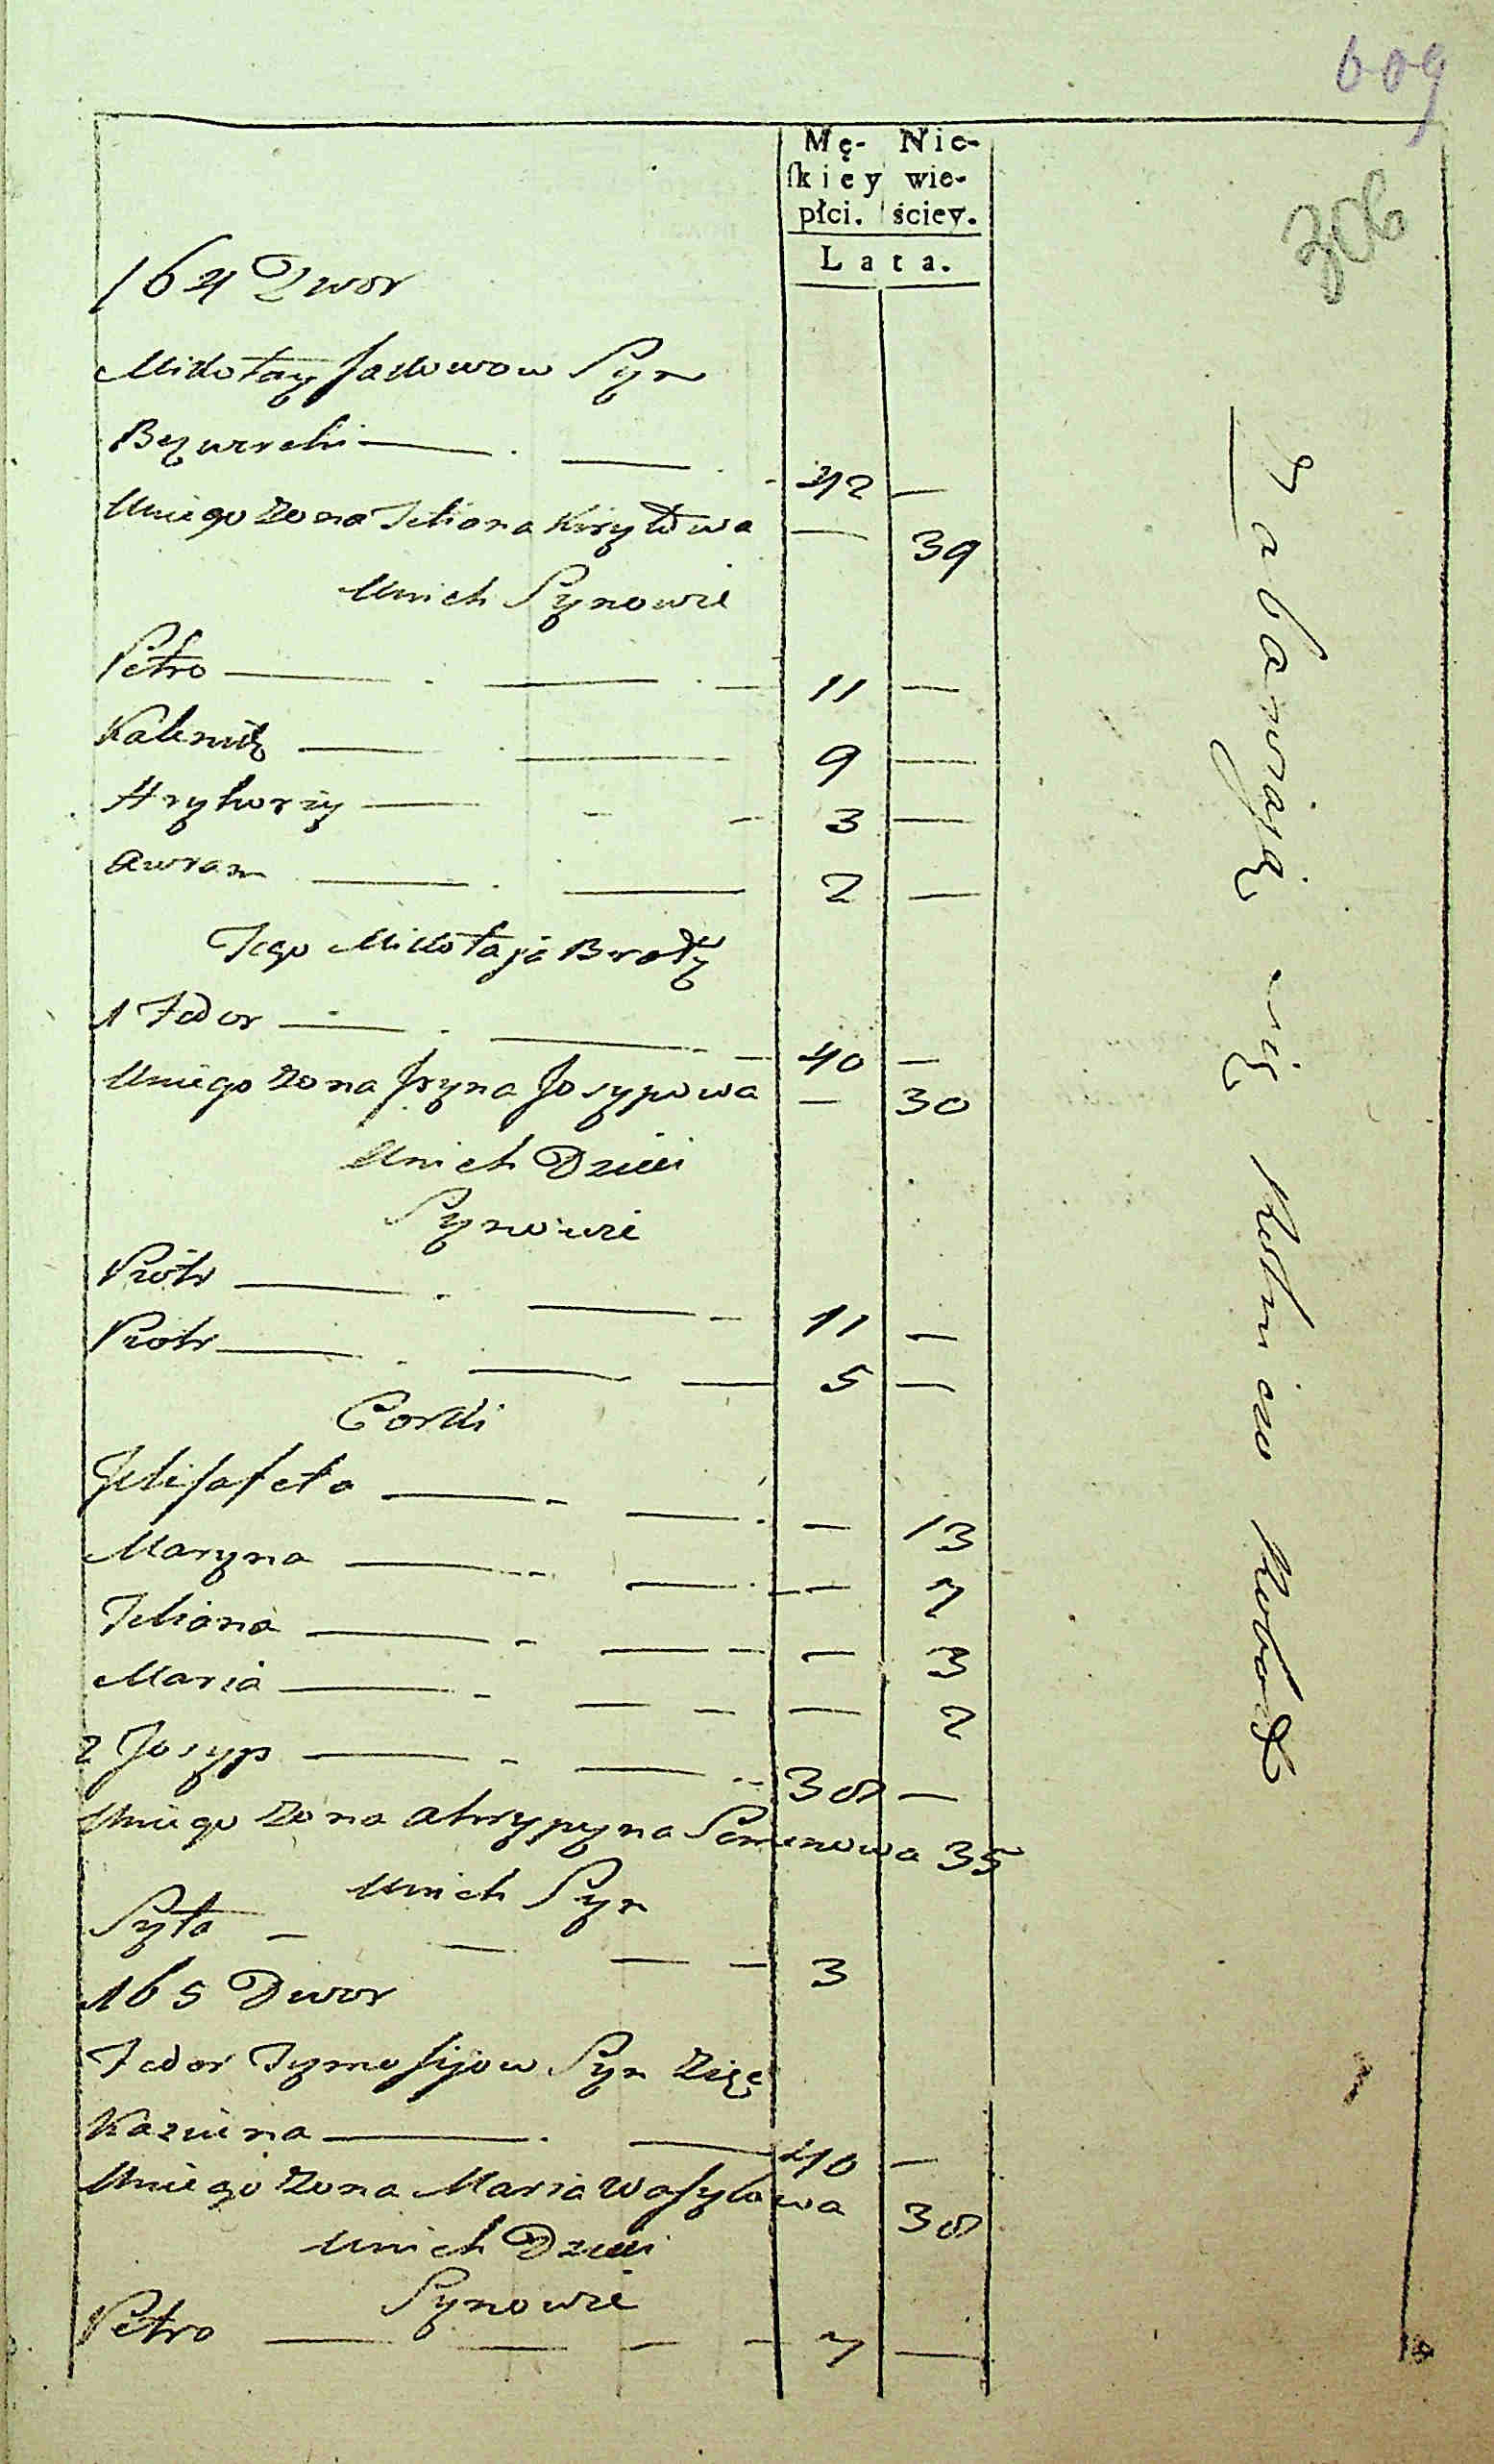 609
306
Mę- Nie-
skiey wie-
płci. ściey.
Lata.
164 Dwor
Mikołay Jakowow Syn
— 42 —
Uniego Zona Juliana Kiryłowa — 39
Unich Synowie
Petro — 11 —
Kalenik — 9 —
Hryhorzy — 3 —
Awram — 2 —
Jego Mikołaja Bracy
1 Fedor — 40 —
Uniego Zona Jryna Josypowa — 30
Unich Dzieci
Synowie
Piotr — 11 —
Piotr — 5 —
Corki
Jelisafeta — 13
Maryna — 7
Juliana — 3
Maria — 2
2 Josyp — 38 —
Uniego Zona Ahrypyna Semenowa 35
Unich Syn
Syła — 3
165 Dwor
Fedor Tymofijow Syn Zięć
Kozina — 40 —
Uniego Zona Maria Wasylowa 38
Unich Dzieci
Synowie
Petro — 7 —
Zabawiają się Rolniczo Robotą